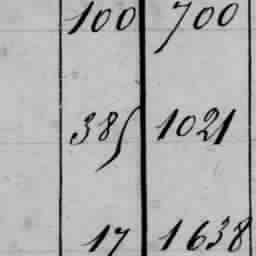 100 700
385 1021
17 1638